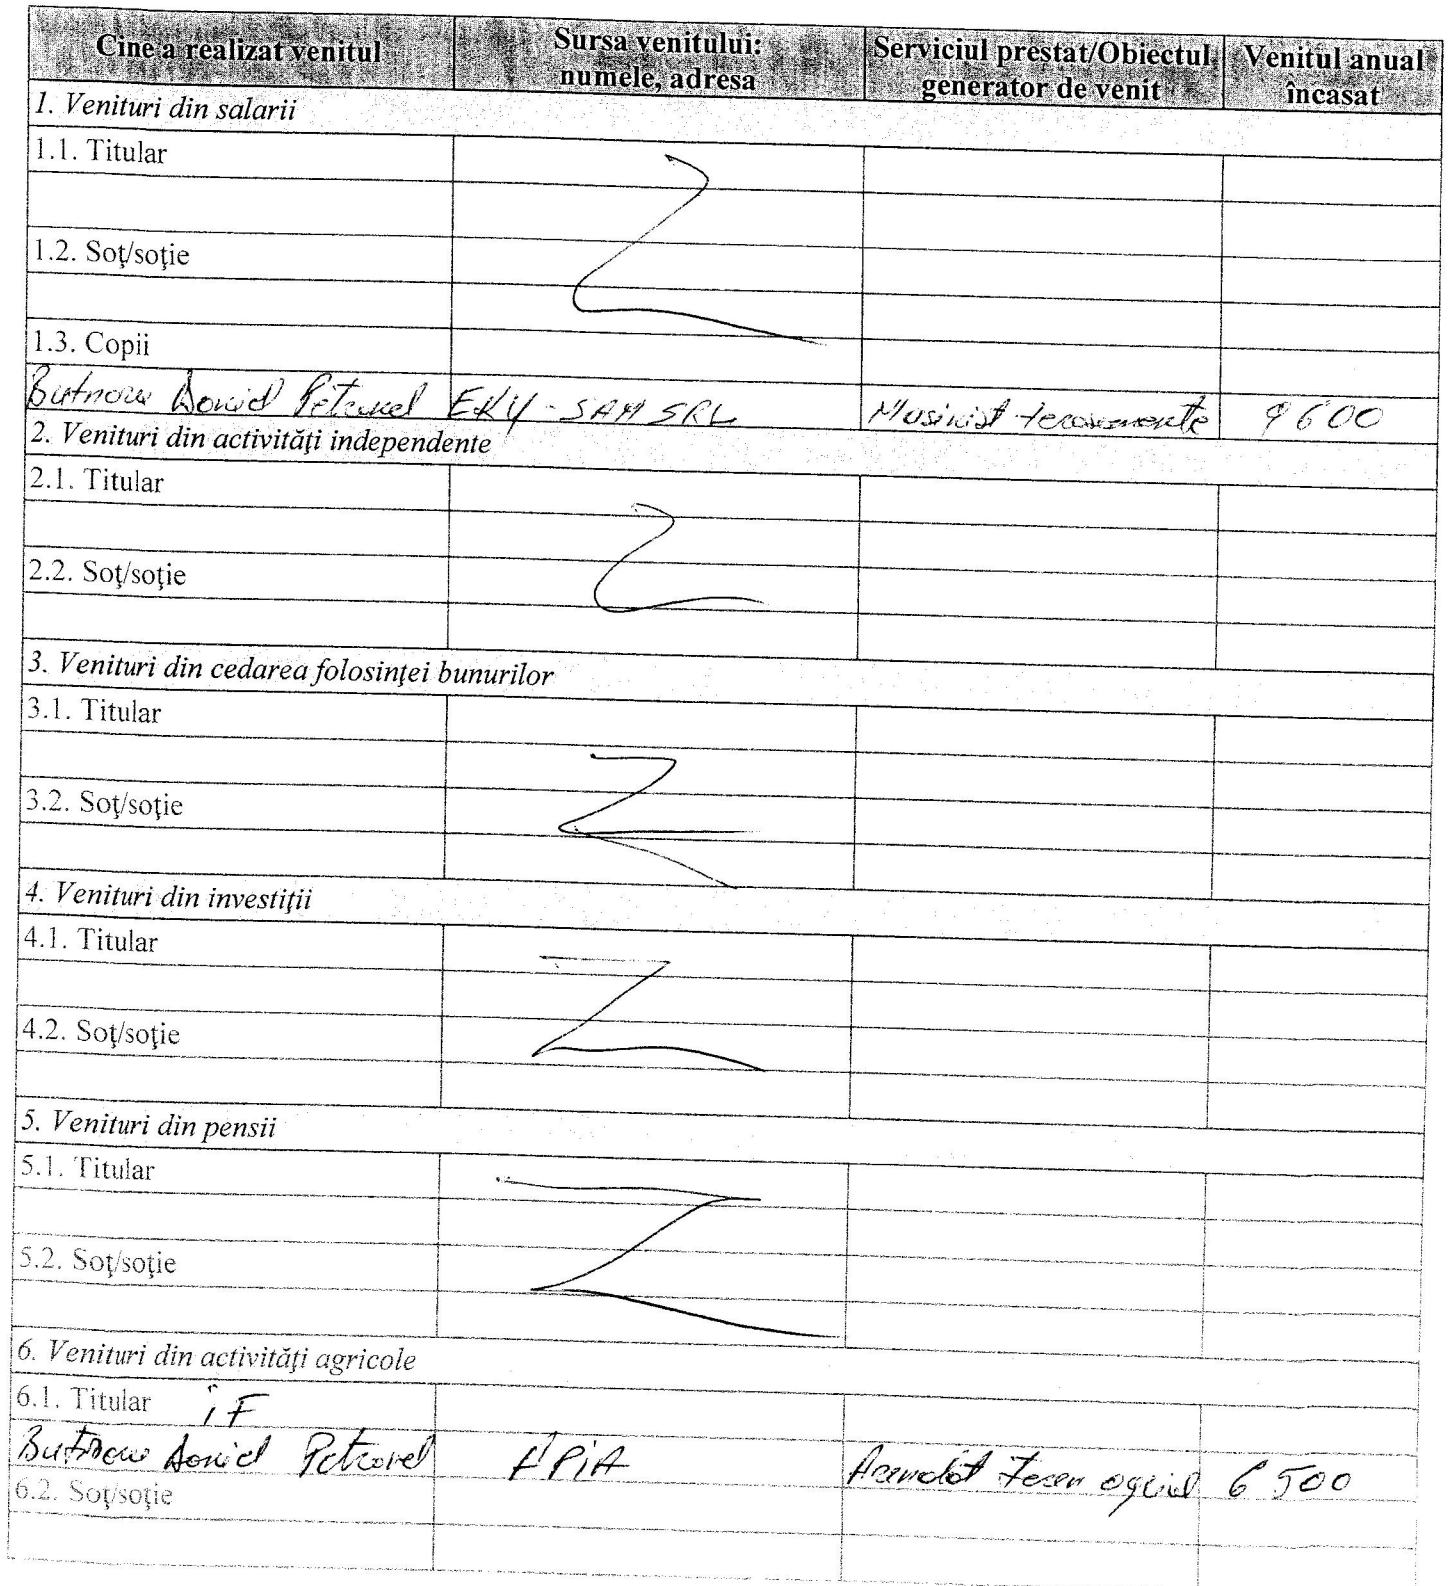 Cine a realizat venitul
Sursa venitului:
numele, adresa
Serviciul prestat/Obiectul
generator de venit
Venitul anual
încasat
1. Venituri din salarii
1.1. Titular
1.2. Soţ/soţie
1.3. Copii
Butnaru Daniel Petronel EKY-SAM SRL Masinist terasamente 9600
2. Venituri din activităţi independente
2.1. Titular
2.2. Soţ/soţie
3. Venituri din cedarea folosinţei bunurilor
3.1. Titular
3.2. Soţ/soţie
4. Venituri din investiţii
4.1. Titular
4.2. Soţ/soţie
5. Venituri din pensii
5.1. Titular
5.2. Soţ/soţie
6. Venituri din activităţi agricole
6.1. Titular iF
Butnaru Daniel Petronel APiA Arendat teren 6500
6.2. Soţ/soţie